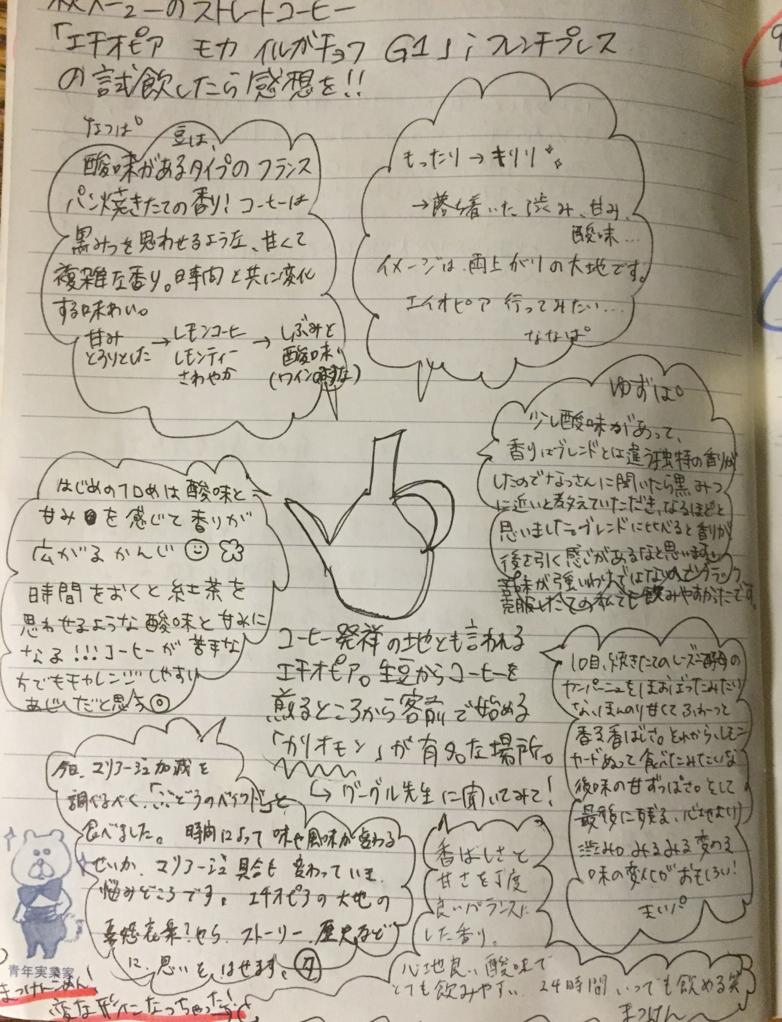 秋メニューのストレートコーヒー
「エチオピア モカ イルガチョフ G1」; フレンチプレス
の試飲したら感想を!!
なっぱ°
豆は、
酸味があるタイプのフランス
パン焼きたての香り! コーヒーは
黒みつを思わせるような、甘くて
複雑な香り。時間と共に変化
する味わい。
甘み
とろりとした
→レモンコーヒ
レモンティー
さわやか
→しぶみと
酸味
(ワインの様な)
もったり→キリリ
→落ち着いた渋み、甘み、
酸味…
イメージは、雨上がりの大地です。
エイオピア 行ってみたい…
ななぱ°
ゆずぱ
少し酸味があって、
香りはブレンドとは違う独特の香りが
したのでなっさんに聞いたら黒みつ
に近いと教えていただき、なるほどと
思いました。ブレンドに比べると香りが
後を引く感じがあるなと思います。
苦味が強いわけではないのでブラック
克服したての私でも飲みやすかったです。
はじめの1口めは酸味と
甘みを感じて香りが
広がるかんじ
時間をおくと紅茶を
思わせるような酸味と甘みに
なる!!! コーヒーが苦手な
方でもチャレンジしやすい
あじいだと思う
コーヒー発祥の地とも言われる
エチオピア。生豆からコーヒーを
煎るところから客前で始める
「カリオモン」が有名な場所。
↳グーグル先生に聞いてみて!
1口目、焼きたてのレーズン酵母の
カンパーニュをほおばったみたい
な、ほんのり甘くてふわーっと
香る香ばしさ。それから、レモン
カードぬって食べたみたいな
後味の甘ずっぱさ。そして
最後に残る、心地よい
渋み。みるみる変わる
味の変化がおもしろい!
まいパ
今日、マリアージュ加減を
調べるべく、「ぶどうのベイクド」と
食べました。時間によって味や風味が変わる
せいか、マリアージュ具合も変わっていき
悩みどころです。エチオピアの大地の
やら、ストーリー、歴史など
に思いをはせます。
香ばしさと
甘さを丁度
良いバランスに
した香り。
心地良い酸味で
とても飲みやすい、24時間いつでも飲める笑
まつけん
青年実業家
まつけんごめん!
変な形になっちゃった!